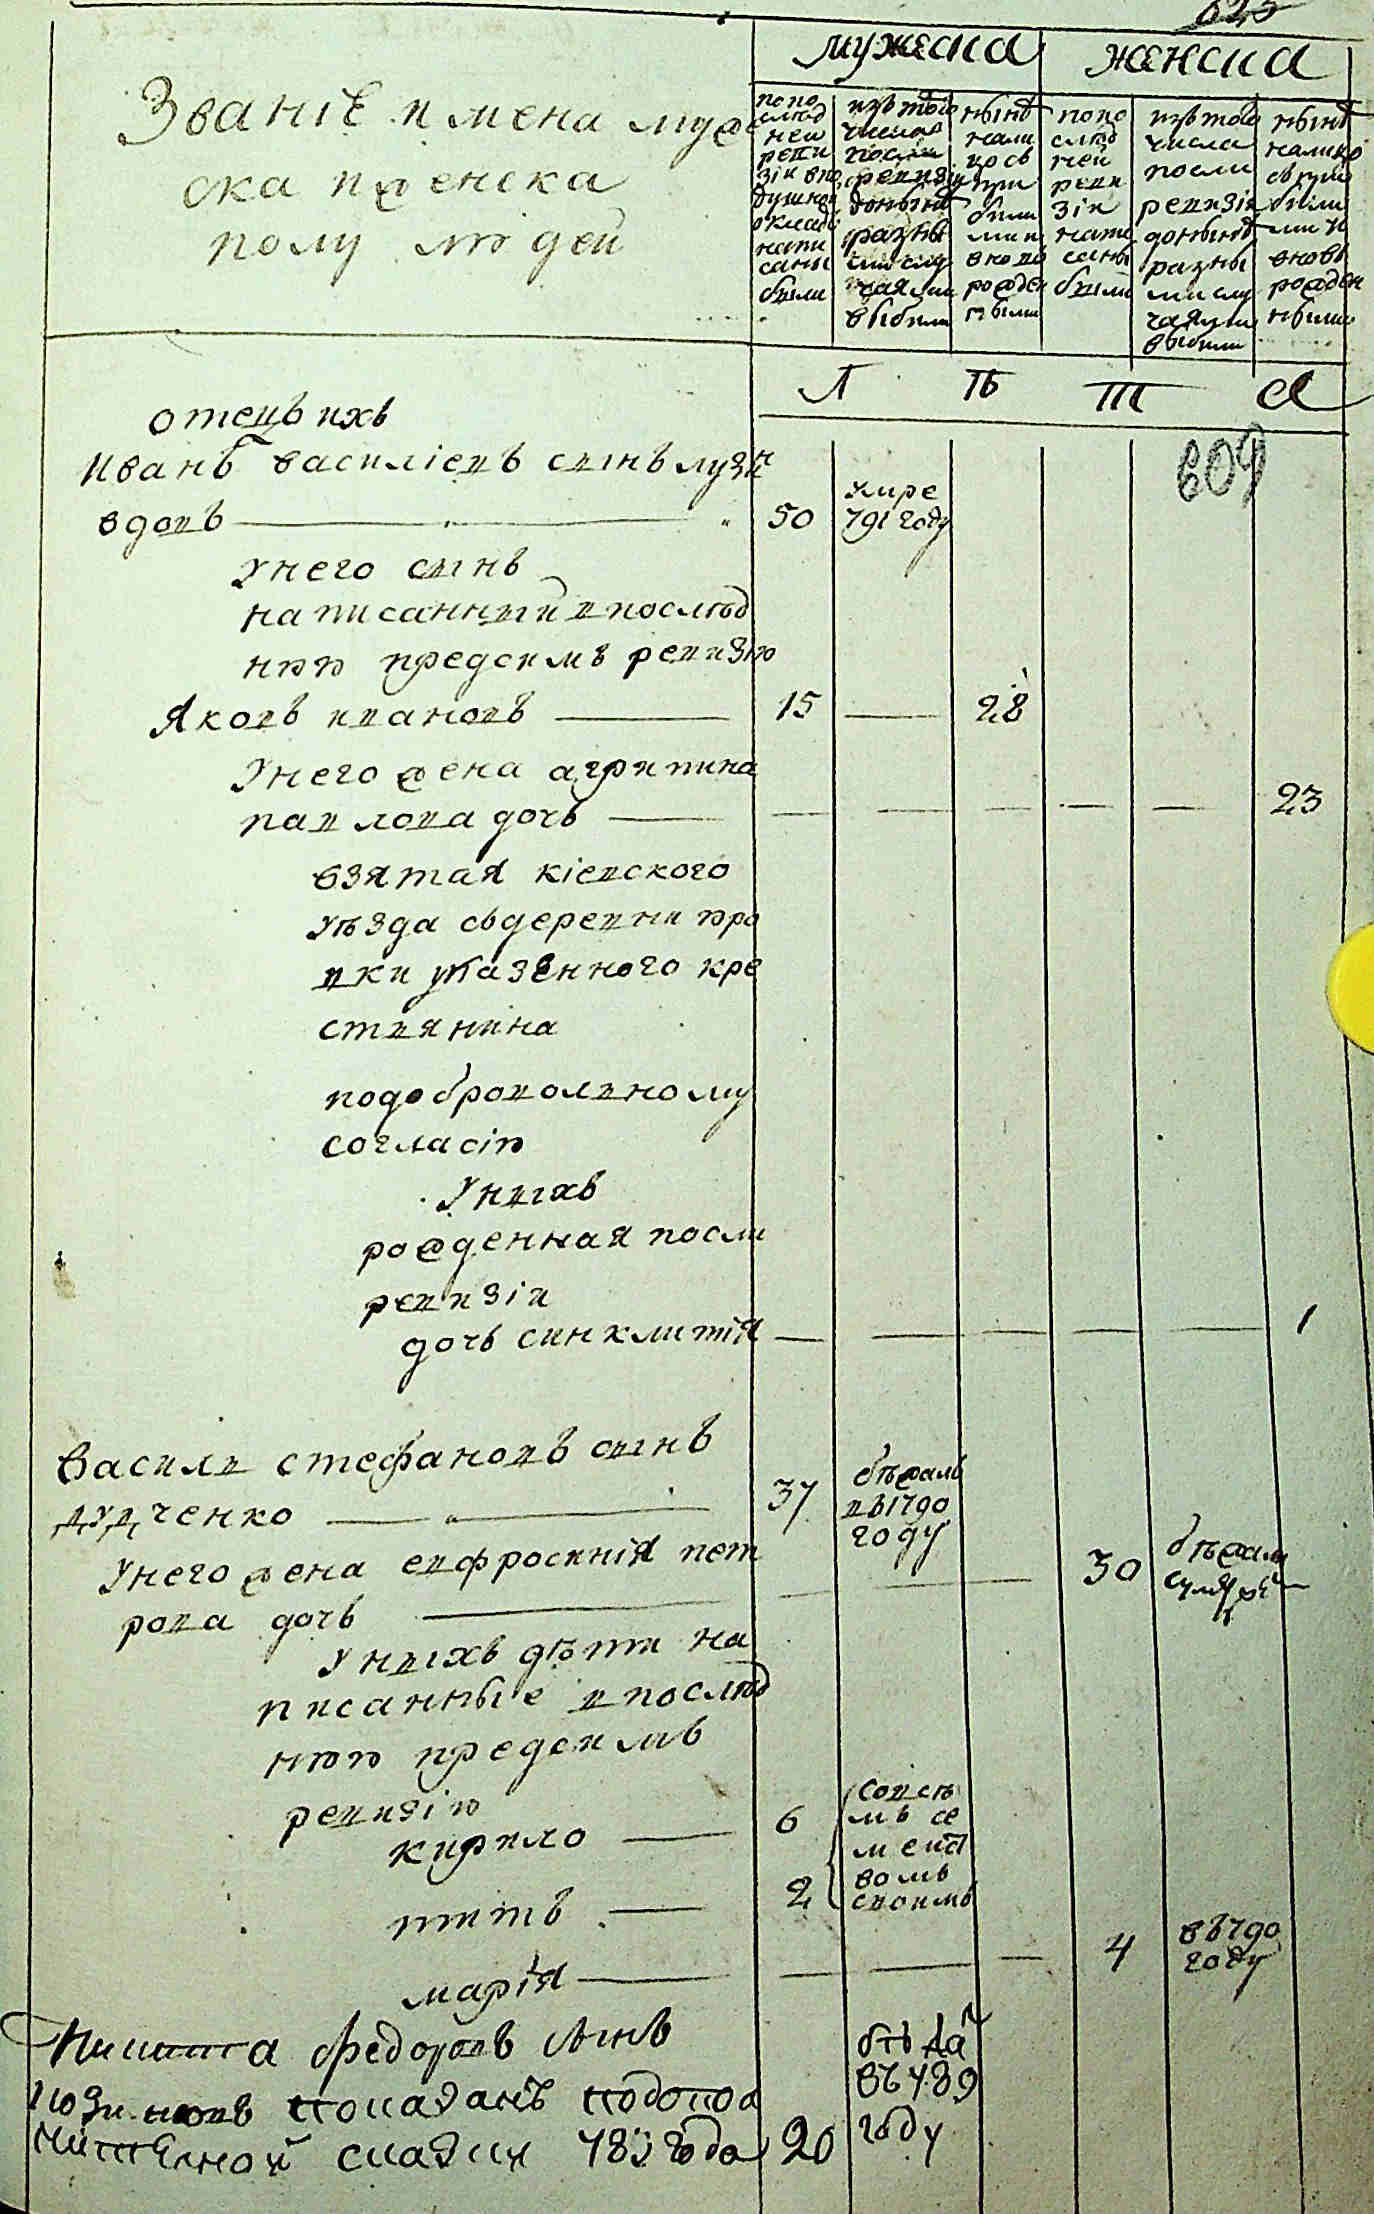 623
мужеска
женска
Званіе и мена муже
ска и женска
полу людей
попо
слѣд
ней
реви
зіи впо
душном
окладѣ
напи
саны
были
изъ того
числа
посли
ревизіи
донынѣ
разны
ми слу
чаями
выбыли
нынѣ
нали
цо съ
при
были
ми и
вновь
рожден
ными
попо
слѣд
ней
реви
зіи
напи
саны
были
изъ того
числа
посли
ревизіи
донынѣ
разны
ми слу
чаями
выбыли
нынѣ
налицо
съ при
были
ми и
вновь
рожден
ными
Л Ѣ Т А
609
отецъ ихъ
Иванъ василіевъ сынъ лузи
вдовъ 50 умре
791 году
Унего сынъ
написанный впослѣд
нюю предсимъ ревизію
Яковъ ивановъ 15 28
Унего жена агрипина
павлова дочь 23
взятая кіевского
уѣзда сьдеревни юро
вки указенного кре
ствянина
подоброволвному
согласію
Унвихъ
рожденная посли
ревизіи
дочь синклитія 1
Василв стефановъ сынъ
дудченко 37 бѣжалъ
въ1790
году
Унего жена евфросинія пет
рова дочь 30 бѣжала
сумужем
Унвихъ дѣти на
писанные впослѣд
нюю предсимъ
ревизію
кирило 6
петръ 2
совсѣ
мъ се
мейст
вомъ
своимъ
марія 4 въ790
году
Никита федоровъ сынъ
показанъ подопол
нителной сказки 783 года 20
бѣжа
въ789
году